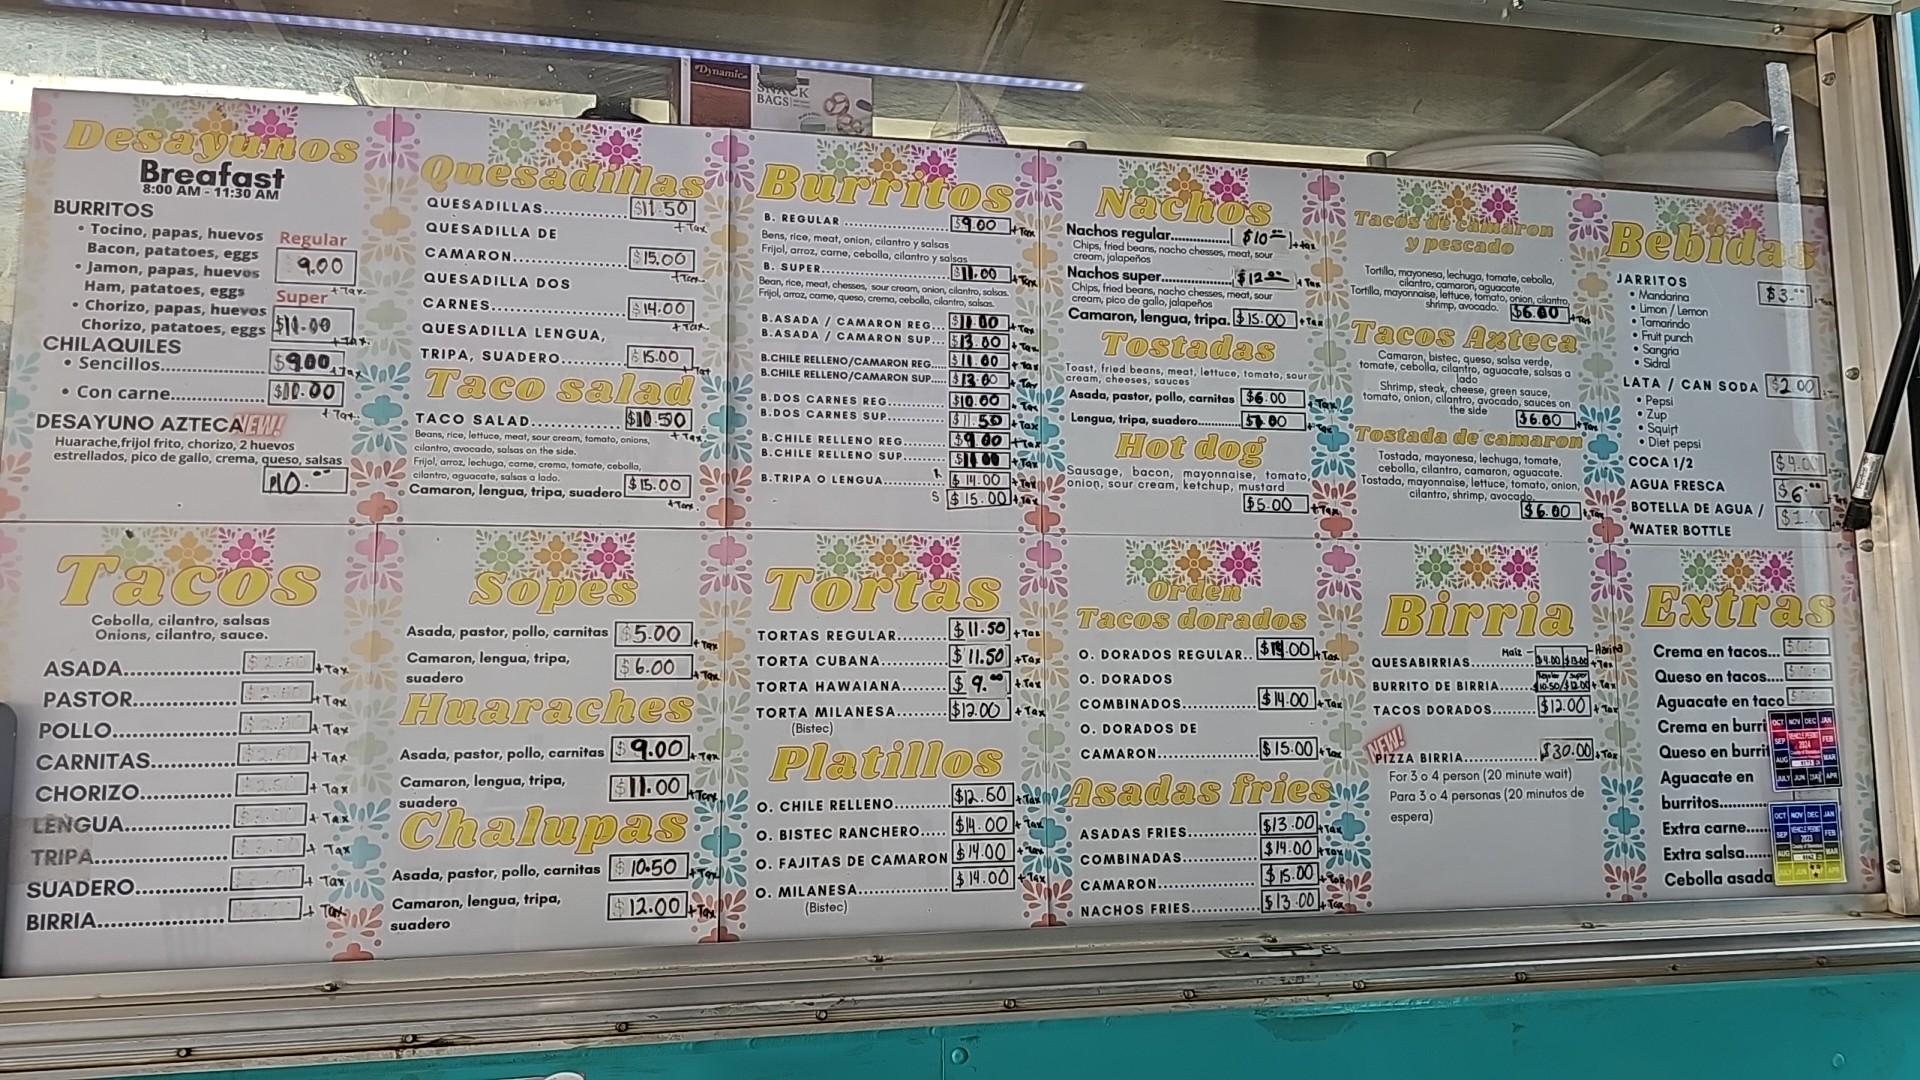 Dynamic
SNACK
BAGS
Desayunos
Breafast
8:00 AM - 11:30 AM
BURRITOS
• Tocino, papas, huevos
Bacon, patatoes, eggs
• Jamon, papas, huevos
Ham, patatoes, eggs
• Chorizo, papas, huevos
Chorizo, patatoes, eggs
Regular
9.00
+ Tax
Super
$11.00
+ Tax
CHILAQUILES
• Sencillos.................. $9.00 + Tax
• Con carne................ $10.00
+ Tax
DESAYUNO AZTECA NEW!
Huarache,frijol frito, chorizo, 2 huevos
estrellados, pico de gallo, crema, queso, salsas
10.00
Quesadillas
QUESADILLAS............... $11.50
+ Tax
QUESADILLA DE
CAMARON..................... $15.00
+ Tax
QUESADILLA DOS
CARNES........................ $14.00
+ Tax
QUESADILLA LENGUA,
TRIPA, SUADERO............ $15.00
+ Tax
Taco salad
TACO SALAD.................. $10.50
+ Tax
Beans, rice, lettuce, meat, sour cream, tomato, onions,
cilantro, avocado, salsas on the side.
Frijol, arroz, lechuga, carne, crema, tomate, cebolla,
cilantro, aguacate, salsas a lado.
Camaron, lengua, tripa, suadero $15.00
+ Tax
Burritos
B. REGULAR .................. $9.00 + Tax
Bens, rice, meat, onion, cilantro y salsas
Frijol, arroz, carne, cebolla, cilantro y salsas
B. SUPER....................... $11.00 + Tax
Bean, rice, meat, chesses, sour cream, onion, cilantro, salsas.
Frijol, arroz, carne, queso, crema, cebolla, cilantro, salsas.
B.ASADA / CAMARON REG... $11.00 + Tax
B.ASADA / CAMARON SUP... $13.00 + Tax
B.CHILE RELLENO/CAMARON REG.... $11.00 + Tax
B.CHILE RELLENO/CAMARON SUP.... $13.00 + Tax
B.DOS CARNES REG........... $10.00 + Tax
B.DOS CARNES SUP........... $11.50 + Tax
B.CHILE RELLENO REG....... $9.00 + Tax
B.CHILE RELLENO SUP....... $11.00 + Tax
B.TRIPA O LENGUA............ R $14.00 + Tax
S $15.00 + Tax
Nachos
Nachos regular............... $10.00 + tax
Chips, fried beans, nacho chesses, meat, sour
cream, jalapeños
Nachos super................. $12.00 + Tax
Chips, fried beans, nacho chesses, meat, sour
cream, pico de gallo, jalapeños
Camaron, lengua, tripa. $15.00 + Tax
Tostadas
Toast, fried beans, meat, lettuce, tomato, sour
cream, cheeses, sauces
Asada, pastor, pollo, carnitas $6.00 + Tax
Lengua, tripa, suadero....... $7.00 + Tax
Hot dog
Sausage, bacon, mayonnaise, tomato,
onion, sour cream, ketchup, mustard
$5.00 + Tax
Tacos de camaron
y pescado
Tortilla, mayonesa, lechuga, tomate, cebolla,
cilantro, camaron, aguacate.
Tortilla, mayonnaise, lettuce, tomato, onion, cilantro,
shrimp, avocado. $6.00 + Tax
Tacos Azteca
Camaron, bistec, queso, salsa verde,
tomate, cebolla, cilantro, aguacate, salsas a
lado
Shrimp, steak, cheese, green sauce,
tomato, onion, cilantro, avocado, sauces on
the side
$6.00 + Tax
Tostada de camaron
Tostada, mayonesa, lechuga, tomate,
cebolla, cilantro, camaron, aguacate.
Tostada, mayonnaise, lettuce, tomato, onion,
cilantro, shrimp, avocado.
$6.00 + Tax
Bebidas
JARRITOS $3.00
• Mandarina
• Limon / Lemon
• Tamarindo
• Fruit punch
• Sangria
• Sidral
LATA / CAN SODA $2.00
• Pepsi
• Zup
• Squirt
• Diet pepsi
COCA 1/2 $4.00
AGUA FRESCA $6.00
BOTELLA DE AGUA / $1.
WATER BOTTLE
Tacos
Cebolla, cilantro, salsas
Onions, cilantro, sauce.
ASADA................ + Tax
PASTOR............... + Tax
POLLO................ + Tax
CARNITAS............. + Tax
CHORIZO.............. + Tax
LENGUA............... + Tax
TRIPA................ + Tax
SUADERO.............. + Tax
BIRRIA............... + Tax
Sopes
Asada, pastor, pollo, carnitas $5.00 + Tax
Camaron, lengua, tripa,
suadero $6.00 + Tax
Huaraches
Asada, pastor, pollo, carnitas $9.00 + Tax
Camaron, lengua, tripa,
suadero $11.00 + Tax
Chalupas
Asada, pastor, pollo, carnitas $10.50 + Tax
Camaron, lengua, tripa,
suadero $12.00 + Tax
Tortas
TORTAS REGULAR........ $11.50 + Tax
TORTA CUBANA.......... $11.50 + Tax
TORTA HAWAIANA....... $9.00 + Tax
TORTA MILANESA....... $12.00 + Tax
(Bistec)
Platillos
O. CHILE RELLENO......... + Tax
O. BISTEC RANCHERO.... $14.00 + Tax
O. FAJITAS DE CAMARON $14.00 + Tax
O. MILANESA............... $14.00 + Tax
(Bistec)
Orden
Tacos dorados
O. DORADOS REGULAR.. + Tax
O. DORADOS
COMBINADOS............... $14.00 + Tax
O. DORADOS DE
CAMARON.................... $15.00 + Tax
Asadas fries
ASADAS FRIES............. $13.00 + Tax
COMBINADAS............... $14.00 + Tax
CAMARON.................... $15.00 + Tax
NACHOS FRIES............. $13.00 + Tax
Birria
Maiz - - Harina
QUESABIRRIAS......... $4.00 $13.00 + Tax
Regular / super
BURRITO DE BIRRIA..... $10.50/$12.00 + Tax
TACOS DORADOS....... $12.00 + Tax
NEW!
PIZZA BIRRIA............ $30.00 + Tax
For 3 o 4 person (20 minute wait)
Para 3 o 4 personas (20 minutos de
espera)
Extras
Crema en tacos...
Queso en tacos....
Aguacate en taco
Crema en burri
Queso en burrit
Aguacate en
burritos............
Extra carne.....
Extra salsa......
Cebolla asada
OCT NOV DEC JAN
SEP VEHICLE PERMIT FEB
2024
AUG MAR
JULY JUN MAY APR
OCT NOV DEC JAN
SEP VEHICLE PERMIT FEB
2023
AUG MAR
JULY JUN APR